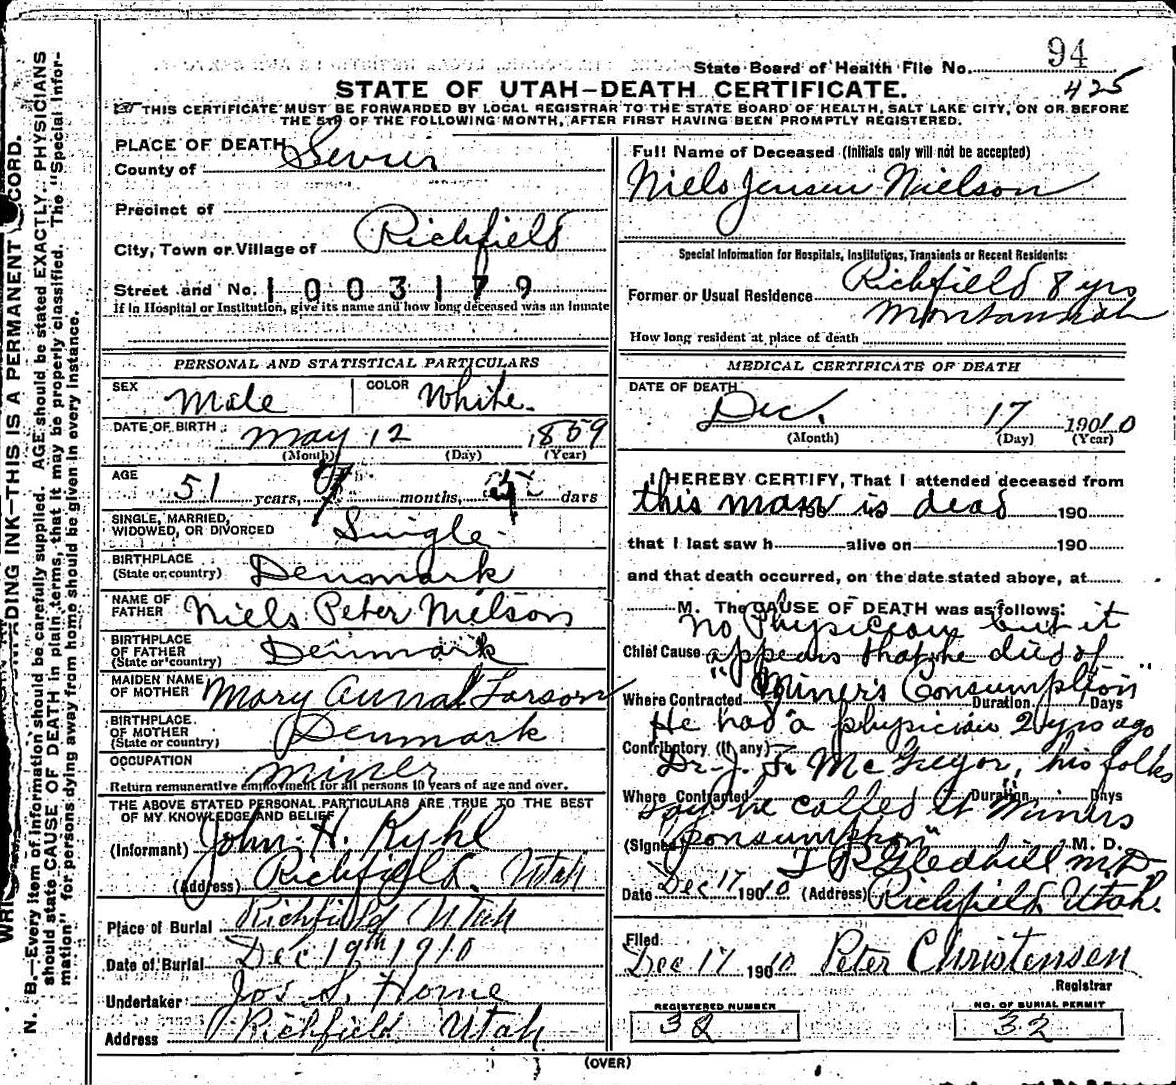 State Board of Health File No. 94
425
STATE OF UTAH—DEATH CERTIFICATE.
THIS CERTIFICATE MUST BE FORWARDED BY LOCAL REGISTRAR TO THE STATE BOARD OF HEALTH, SALT LAKE CITY, ON OR BEFORE
THE 5TH OF THE FOLLOWING MONTH, AFTER FIRST HAVING BEEN PROMPTLY REGISTERED.
PLACE OF DEATH
County of Sevier
Precinct of
City, Town or Village of Richfield
Street and No. 1003179
if in Hospital or Institution, give its name and how long deceased was an inmate
PERSONAL AND STATISTICAL PARTICULARS
SEX Male COLOR White.
DATE OF BIRTH May 12 1859
(Month) (Day) (Year)
AGE 51 years, 7 months, days
SINGLE, MARRIED,
WIDOWED, OR DIVORCED Single
BIRTHPLACE
(State or country) Denmark
NAME OF
FATHER Niels Peter Nielson
BIRTHPLACE
OF FATHER
(State or country) Denmark
MAIDEN NAME
OF MOTHER Mary Anna Larson
BIRTHPLACE
OF MOTHER
(State or country) Denmark
OCCUPATION Miner
Return remunerative employment for all persons 10 years of age and over.
THE ABOVE STATED PERSONAL PARTICULARS ARE TRUE TO THE BEST
OF MY KNOWLEDGE AND BELIEF
(Informant) John H. Kyhl
(Address) Richfield. Utah
Place of Burial Richfield Utah
Date of Burial Dec 19th 1910
Undertaker Jos S. Horne
Address Richfield Utah
Full Name of Deceased (Initials only will not be accepted)
Niels Jensen Nielson
Special Information for Hospitals, Institutions, Transients or Recent Residents:
Former or Usual Residence Richfield 8 yrs
How long resident at place of death
MEDICAL CERTIFICATE OF DEATH
DATE OF DEATH
Dec. 17 1910
(Month) (Day) (Year)
I HEREBY CERTIFY, That I attended deceased from
this man is dead 190
that I last saw h alive on 190
and that death occurred, on the date stated above, at
M. The CAUSE OF DEATH was as follows:
No Physician but it
Chief Cause appears that he died of
Where Contracted "Miner's Consumption Duration Days
He had a physician 2 yrs ago
Contributory (If any)
Dr. J. F. McGregor, his folks
Where Contracted Duration Days
say he called it Miners
(Signed) Consumption" M. D.
T. R. Gledhill M.D.
Date Dec 17 1910 (Address) Richfield Utah.
Filed
Dec 17 1910 Peter Christensen
Registrar
REGISTERED NUMBER
32
NO. OF BURIAL PERMIT
32
(OVER)
N. B.—Every item of information should be carefully supplied. AGE should be stated EXACTLY. PHYSICIANS
should state CAUSE OF DEATH in plain terms, that it may be properly classified. The "Special Infor-
mation" for persons dying away from home should be given in every instance.
ADING INK—THIS IS A PERMANENT CORD.